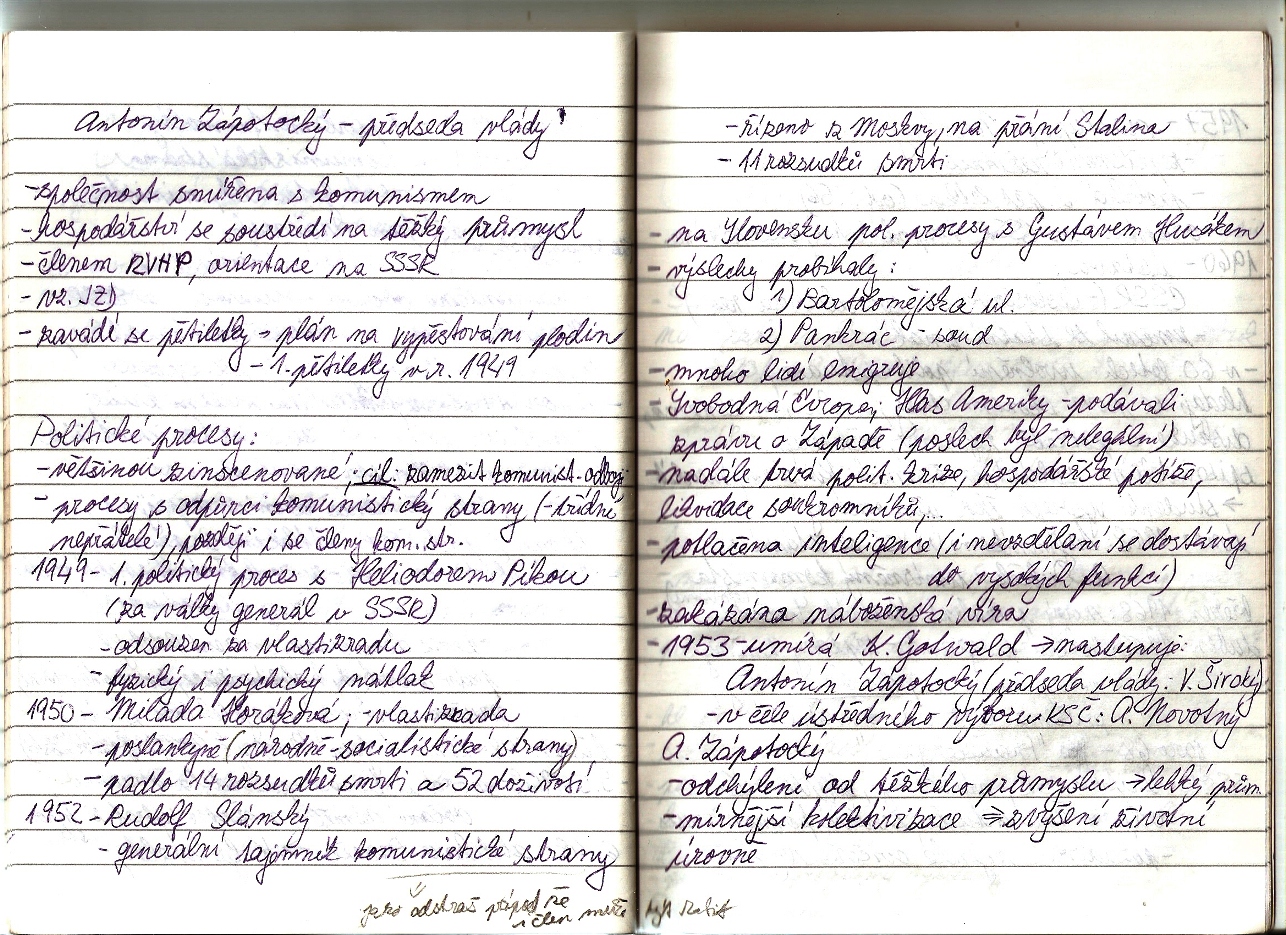 Antonín Zápotocký – předseda vlády
-společnost smířena s komunismem
-hospodářství se soustředí na těžký průmysl
-členem RVHP, orientace na SSSR
- vz. JZD
- zavádí se pětiletky → plán na vypěstování plodin
- 1. pětiletky v r. 1949
Politické procesy:
-většinou zinscenované; cíl: zamezit komunist. odboji
- procesy s odpůrci komunistický strany (-třídní
nepřátelé), později i se členy kom. str.
1949- 1. politický proces s Heliodorem Píkou
(za války generál v SSSR)
-odsouzen za vlastizradu
- fyzický i psychický nátlak
1950 – Milada Horáková; -vlastizrada
-poslankyně (národně-socialistické strany)
-padlo 14 rozsudků smrti a 52 doživotí
1952 – Rudolf Slánský
- generální tajomník komunistické strany
jako odstraš případ že
i člen může být
-řízeno z Moskvy, na přání Stalina
- 11 rozsudků smrti
- na Slovensku pol. procesy s Gustávem Husákem
- výslechy probíhaly:
1) Bartolomějská ul.
2) Pankrác - soud
- mnoho lidí emigruje
- Svobodná Evropa; Hlas Ameriky -podávali
zprávu o Západě (poslech byl nelegální)
-nadále trvá polit. krize, hospodářské potíže,
likvidace soukromníků,...
-potlačena inteligence (i nevzdělaní se dostávají
do vysokých funkcí)
-zakázána náboženská víra
-1953-umírá K. Gotwald → nastupuje:
Antonín Zápotocký (předseda vlády: V. Široký)
-v čele ústředního výboru KSČ: A. Novotný
A. Zápotocký
-odchýlení od těžkého průmyslu → lehký prům.
-mírnější kolektivizace ⇒ zvýšení životní
úrovně